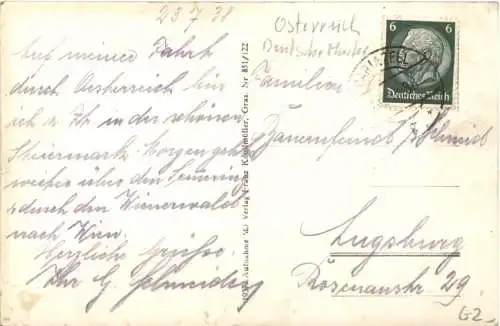 23 7 38
Auf meiner Fahrt
durch Oesterreich bin
ich z. Zt. in der schönen
Steiermark. Morgen geht's
weiter über den Semmering
durch den Wienerwald
nach Wien.
Herzliche Grüße.
Ihr G. Schmid
1937 Aufnahme u. Verlag Franz Knollmüller, Graz Nr 851/122
Österreich
Deutscher Marke
6 6
Deutsches Reich
Familien
Bauernfeind / Schmid
Augsburg
Rosenaustr. 29.
G2-